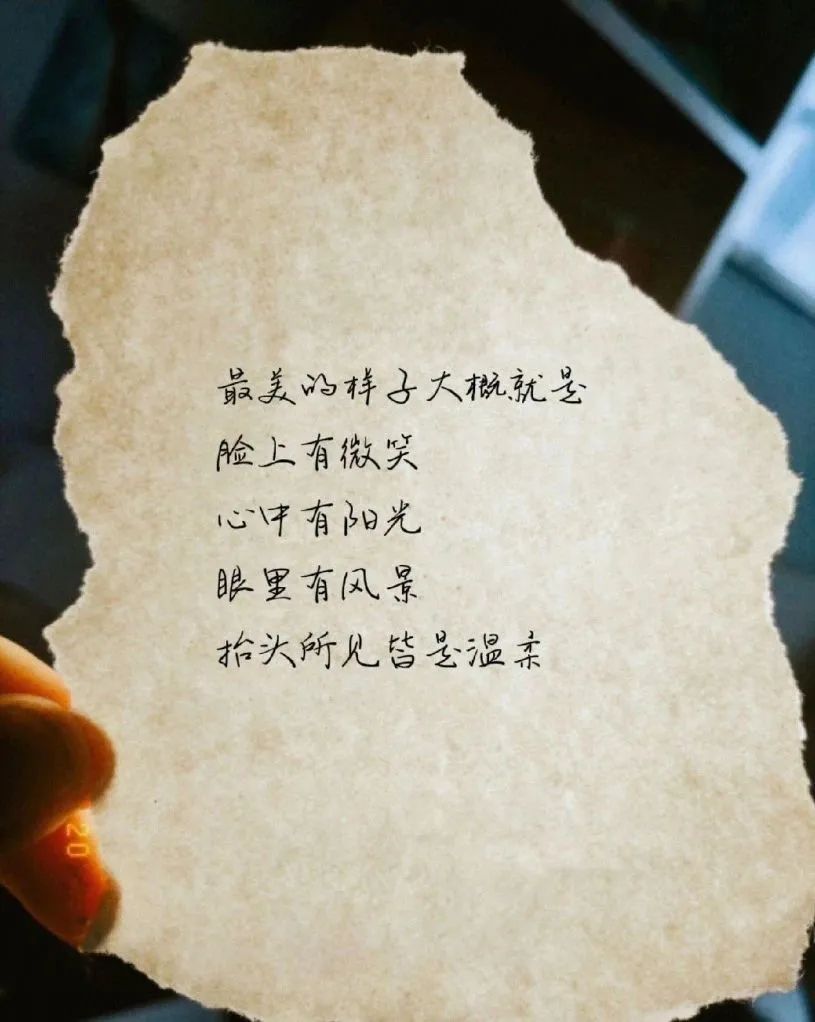 最美的样子大概就是
脸上有微笑
心中有阳光
眼里有风景
抬头所见皆是温柔
20